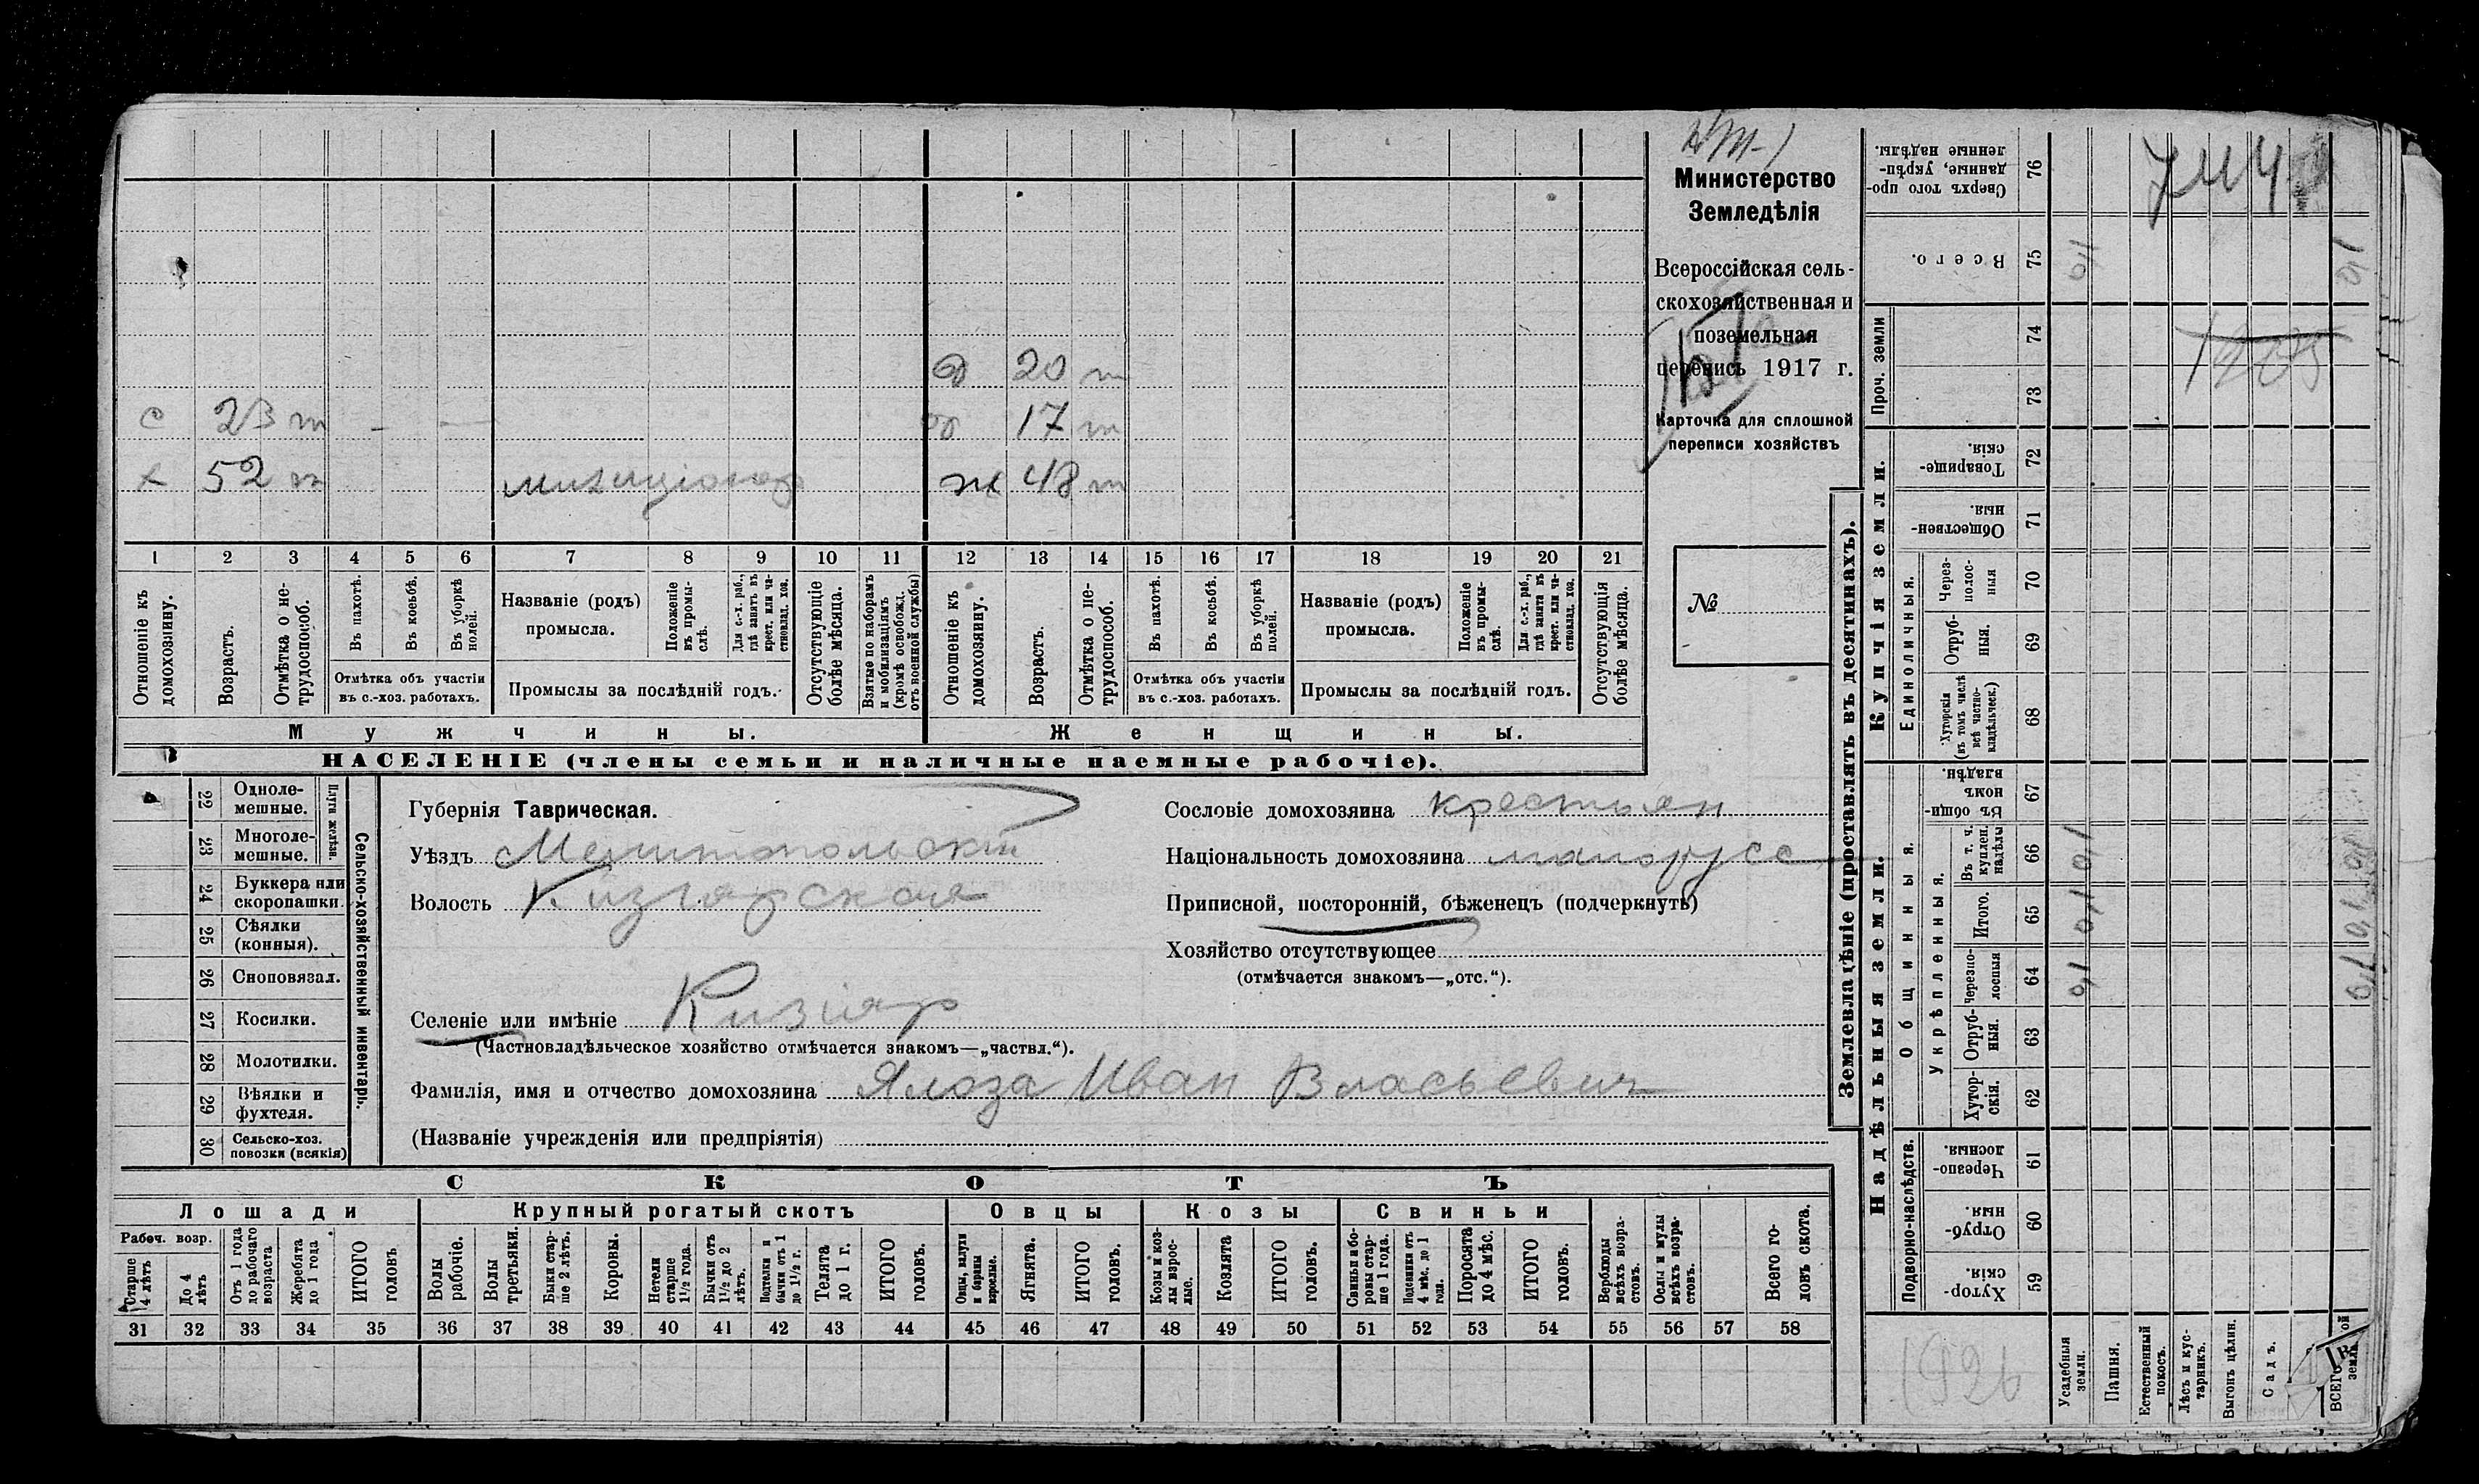 Министерство
Земледѣлія
Всероссійская сель-
скохозяйственная и
поземельная
перепись 1917 г.
Карточка для сплошной
переписи хозяйствъ
№
д 20 т
с 23 т — — 17 т
х 52 т милиціонер ж 48 т
1 2 3 4 5 6 7 8 9 10 11 12 13 14 15 16 17 18 19 20 21
Отношеніе къ домохозяину.
Возрастъ.
Отмѣтка о не-трудоспособ.
Въ пахотѣ.
Въ косьбѣ.
Въ уборкѣ полей.
Отмѣтка объ участіи
въ с.-хоз. работахъ.
Названіе (родъ)
промысла.
Положеніе въ промы-слѣ.
Для с.-х. раб., гдѣ занятъ въ крест. или ча-стновлад. хоз.
Промыслы за послѣдній годъ.
Отсутствующіе болѣе мѣсяца.
Взятые по наборамъ и мобилизаціямъ (кромѣ освобожд. отъ военной службы)
Отношеніе къ домохозяину.
Возрастъ.
Отмѣтка о не-трудоспособ.
Въ пахотѣ.
Въ косьбѣ.
Въ уборкѣ полей.
Отмѣтка объ участіи
въ с.-хоз. работахъ.
Названіе (родъ)
промысла.
Положеніе въ промы-слѣ.
Для с.-х. раб., гдѣ занята въ крест. или ча-стновлад. хоз.
Промыслы за послѣдній годъ.
Отсутствующія болѣе мѣсяца.
Мужчины. Женщины.
НАСЕЛЕНІЕ (члены семьи и наличные наемные рабочіе).
Сельско-хозяйственный инвентарь.
Плуги желѣзн.
22 Одноле-мешные.
23 Многоле-мешные.
24 Буккера или скоропашки.
25 Сѣялки (конныя).
26 Сноповязал.
27 Косилки.
28 Молотилки.
29 Вѣялки и фухтеля.
30 Сельско-хоз. повозки (всякія)
Губернія Таврическая.
Уѣздъ Мелитопольскій
Волость Кизіярская
Селеніе или имѣніе Кизіяр
(Частновладѣльческое хозяйство отмѣчается знакомъ—„частвл.“).
Фамилія, имя и отчество домохозяина Ялоза Иван Власьевич
(Названіе учрежденія или предпріятія)
Сословіе домохозяина крестьян
Національность домохозяина малорусс
Приписной, посторонній, бѣженецъ (подчеркнуть)
Хозяйство отсутствующее
(отмѣчается знакомъ—„отс.“).
СКОТЪ
Лошади Крупный рогатый скотъ Овцы Козы Свиньи
Рабоч. возр.
Старше 4 лѣтъ
До 4 лѣтъ
Отъ 1 года до рабочаго возраста
Жеребята до 1 года
ИТОГО головъ
Волы рабочіе.
Волы третьяки.
Быки стар-ше 2 лѣтъ.
Коровы.
Нетели старше 1½ года.
Бычки отъ 1½ до 2 лѣтъ.
Подтелки и бычки отъ 1 до 1½ г.
Телята до 1 г.
ИТОГО головъ.
Овцы, валухи и бараны взрослые.
Ягнята.
ИТОГО головъ.
Козы и коз-лы взрос-лые.
Козлята
ИТОГО головъ.
Свиньи и бо-ровы стар-ше 1 года.
Подсвинки отъ 4 мѣс. до 1 года.
Поросята до 4 мѣс.
ИТОГО головъ.
Верблюды всѣхъ возра-стовъ.
Ослы и мулы всѣхъ возра-стовъ.
Всего го-ловъ скота.
31 32 33 34 35 36 37 38 39 40 41 42 43 44 45 46 47 48 49 50 51 52 53 54 55 56 57 58
Землевладѣніе (проставлять въ десятинахъ).
Надѣльныя земли. Купчія земли. Проч. земли
Подворно-наслѣдств.
Общинныя.
Укрѣпленныя.
Единоличныя.
Сверхъ того про-данные, укрѣп-ленные надѣлы. 76
Всего. 75
74
73
Товарище-скія. 72
Обществен-ныя. 71
Через-полос-ныя 70
Отруб-ныя. 69
Хуторскія (въ томъ числѣ всѣ частно-владѣльческ.) 68
Въ общин-номъ владѣн. 67
Въ т. ч. куплен. надѣлы 66
Итого. 65
Черезпо-лосныя 64
Отруб-ныя. 63
Хутор-скія. 62
Черезпо-лосныя. 61
Отруб-ныя. 60
Хутор-скія. 59
Усадебныя земли.
Пашня.
Естественный покосъ.
Лѣсъ и кус-тарникъ.
Выгонъ цѣлин.
Садъ.